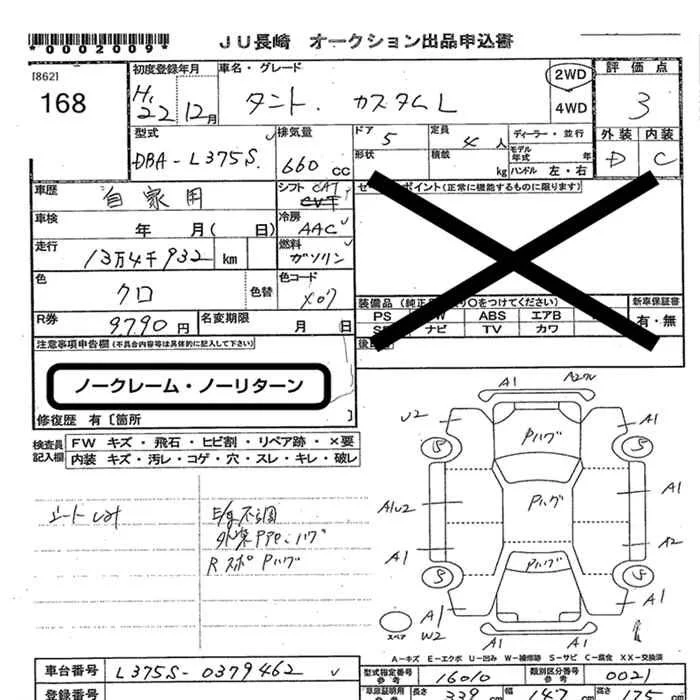 *0002009*
JU長崎 オークション出品申込書
[862]
168
初度登録年月
H.22 12月
車名・グレード
タント. カスタムL
2WD
4WD
評価点
3
型式
DBA-L375S.
排気量
660 CC
ドア 5
定員 4 人
形状
積載 kg
ディーラー・並行
モデル年式 年
ハンドル 左・右
外装 内装
D C
車歴
自家用
シフト CAT
冷房
AAC
車検
年 月( 日)
走行
13万4千932 km
燃料
ガソリン
色
クロ
色替
色コード
X07
R券
9790円
名変期限
月 日
ポイント(正常に機能するものに限ります)
装備品
りOをつけてください)
PS ABS エアB
ナビ TV カワ
新車保証書
有・無
注意事項申告欄(不具合内容等は具体的に記入して下さい)
ノークレーム・ノーリターン
修復歴 有〔箇所
検査員記入欄
FW キズ・飛石・ヒビ割・リペア跡・×要
内装 キズ・汚レ・コゲ・穴・スレ・キレ・破レ
シートシミ
E/g不調
外装PP.ハゲ
RスポPハゲ
A1 A2ワレ
U2 A1
Pハゲ
S S
Pハゲ
A1U2 A1
A1 A2
Pハゲ
S S
スペア
A1
W2
A1
A1
A-キズ E-エクボ U-凹み W-補修跡 S-サビ C-腐食 XX-交換済
車台番号
L375S-0379462
型式指定番号参考
16010
類別区分番号参考
0021
登録番号
長さ 339 cm
幅 147 cm
高さ 175 cm